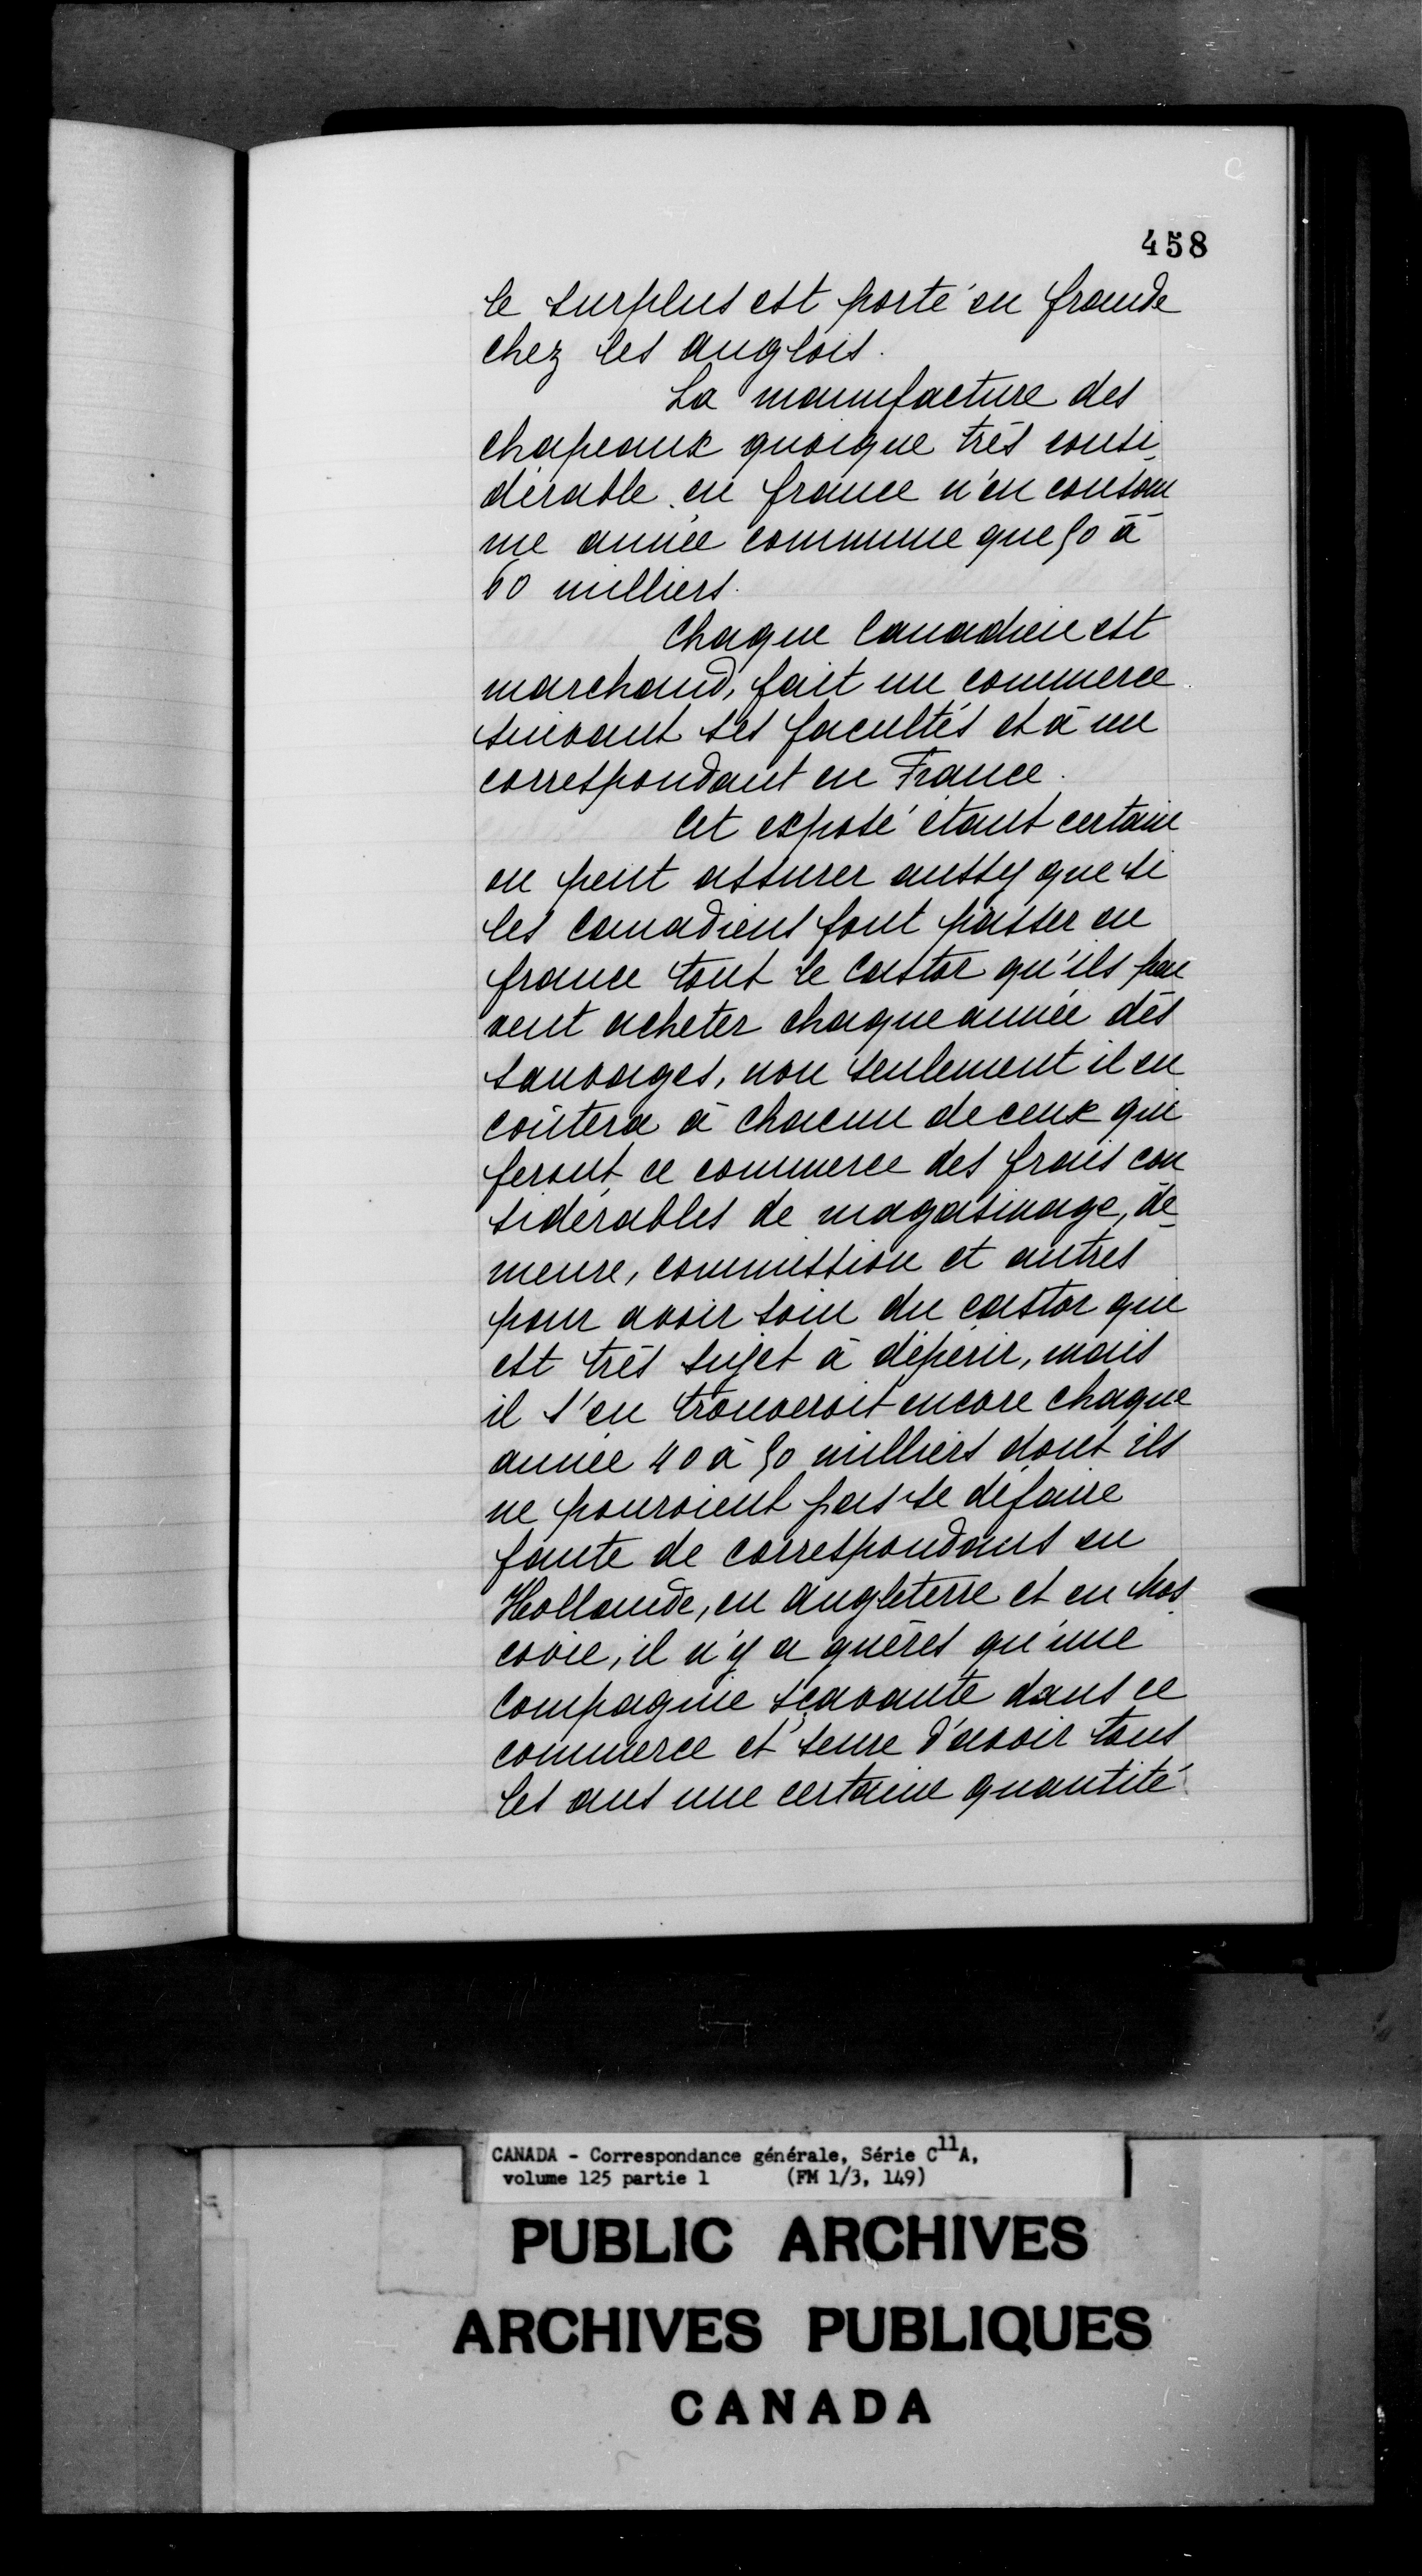 458
le surplus est porté en fraude
chez les anglois.
La manufacture des
chapeaux quoique très consi-
dérable en france n'en consom
me année commune que 50 à
60 milliers.
Chaque Canadien est
marchand, fait un commerce
suivant ses facultés et à un
correspondant en France.
Cet exposé étant certain
on peut assurer aussy que si
les canadiens font passer en
france tout le castor qu'ils peu
vent acheter chaque année dés
sauvages, non seulement il en
coûtera à chacun de ceux qui
feront ce commerce des frais con
sidérables de magasinage, de-
meure, commission et autres
pour avoir soin du castor qui
est très sujet à dépérir, mais
il s'en trouveroit encore chaque
année 40 à 50 milliers dont ils
ne pouroient pas se défaire
faute de correspondans en
Hollande, en angleterre et en Mos
covie, il n'y a guères qu'une
Compagnie sçavante dans ce
commerce et seure d'avoir tous
les ans une certaine quantité
CANADA - Correspondance générale, Série C11A,
volume 125 partie 1 (FM 1/3, 149)
PUBLIC ARCHIVES
ARCHIVES PUBLIQUES
CANADA